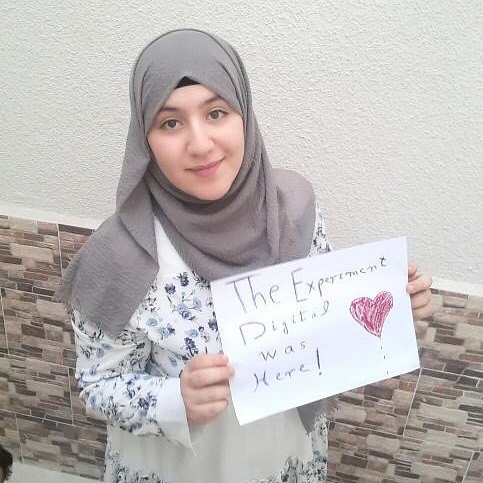 The Experiment
Digital
was
Here!